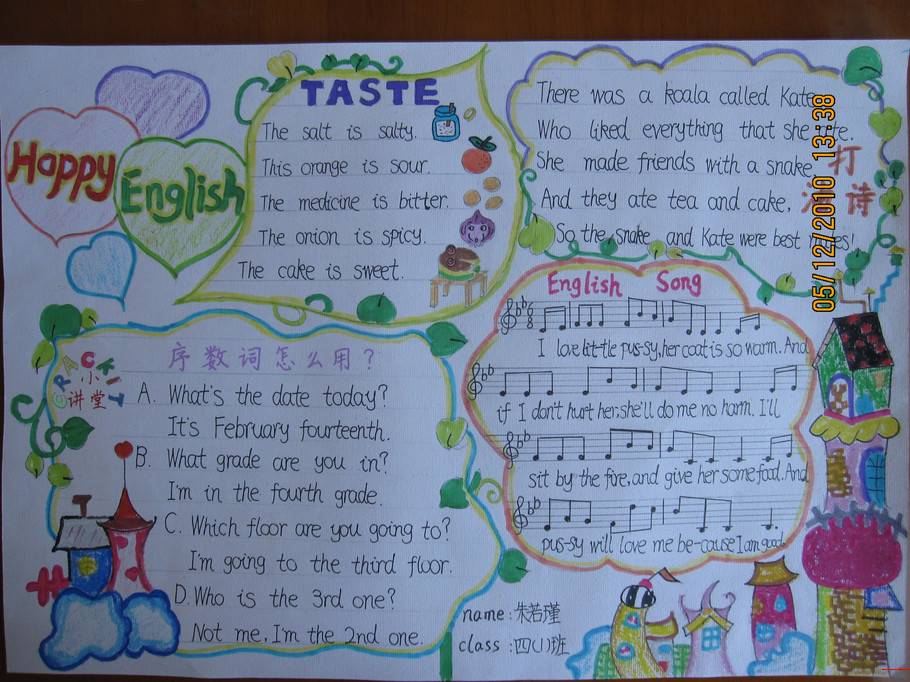 Happy
English
TASTE
The salt is salty.
This orange is sour.
The medicine is bitter.
The onion is spicy.
The cake is sweet.
There was a koala called Kate
Who liked everything that she ate.
She made friends with a snake
And they ate tea and cake,
So the snake and Kate were best mates!
打
油 诗
05/12/2010 13:38
English Song
I love lit-tle pus-sy, her coat is so warm. And
if I don't hurt her, she'll do me no harm. I'll
sit by the fire, and give her some food. And
pus-sy will love me be-cause I am good.
CRACK IT
小
讲堂
序数词怎么用?
A. What's the date today?
It's February fourteenth.
B. What grade are you in?
I'm in the fourth grade.
C. Which floor are you going to?
I'm going to the third floor.
D. Who is the 3rd one?
Not me. I'm the 2nd one.
name: 朱若瑾
class: 四(1)班